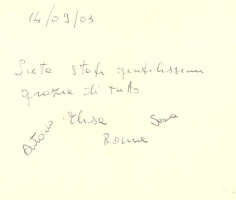 14/09/03
Siete stati gentilissimi
grazie di tutto
Antonio Elisa Sonia
Roma